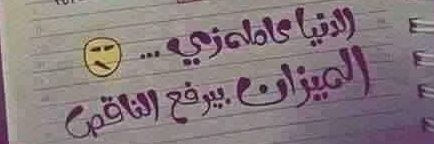 الدنيا عامله زي ...
الميزان بيرفع الناقص